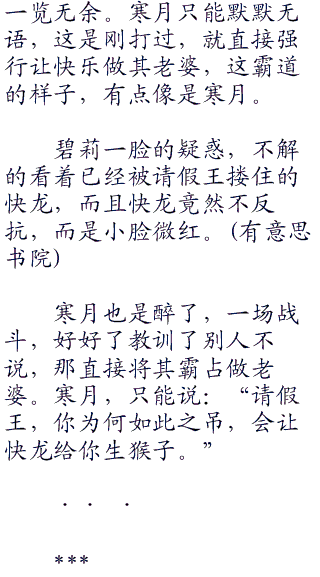 一览无余。寒月只能默默无
语，这是刚打过，就直接强
行让快乐做其老婆，这霸道
的样子，有点像是寒月。
碧莉一脸的疑惑，不解
的看着已经被请假王搂住的
快龙，而且快龙竟然不反
抗，而是小脸微红。(有意思
书院)
寒月也是醉了，一场战
斗，好好了教训了别人不
说，那直接将其霸占做老
婆。寒月，只能说：“请假
王，你为何如此之吊，会让
快龙给你生猴子。”
．．．
***